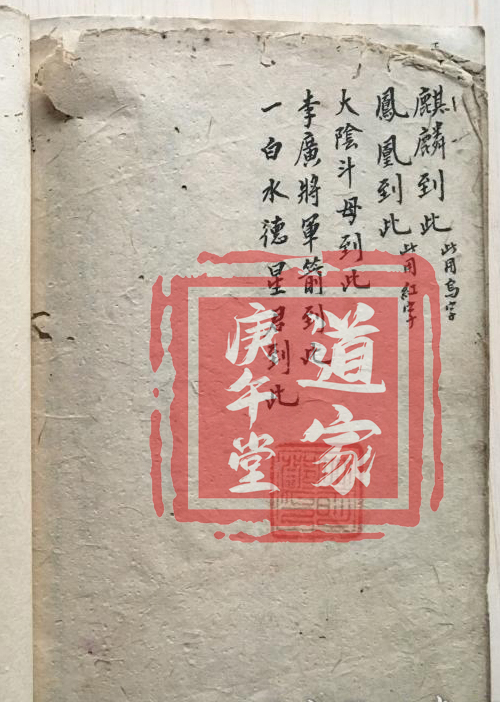 麒麟到此 此用烏字
鳳凰到此 此用紅字
大陰斗母到此
李廣將軍箭到此
一白水德星君到此
道家
庚午堂